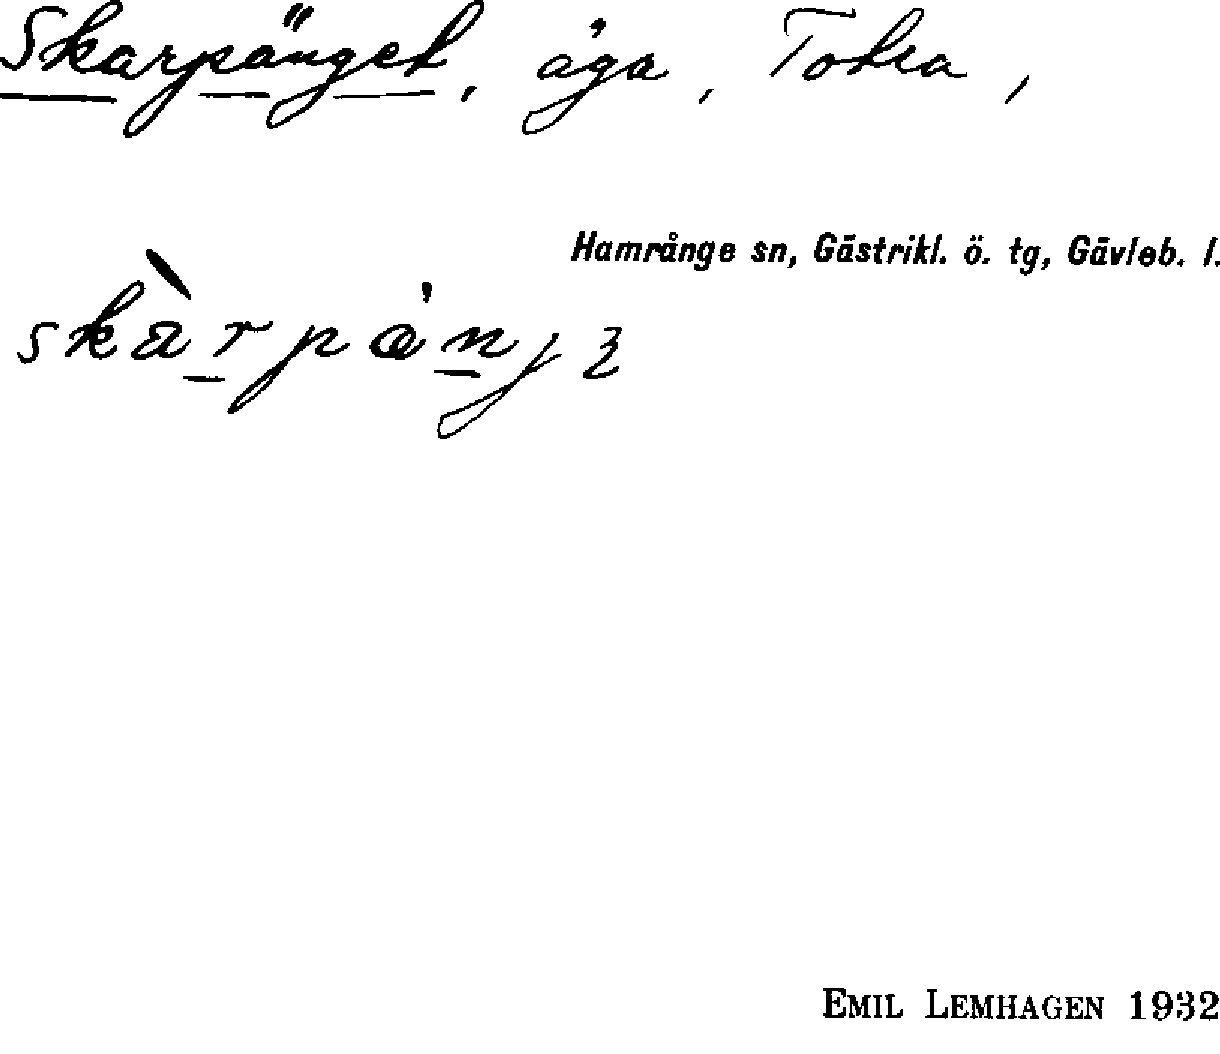 Skarpänget, åga, Totra,
Hamrånge sn, Gästrikl. ö. tg, Gävleb. l.
EMIL LEMHAGEN 1932